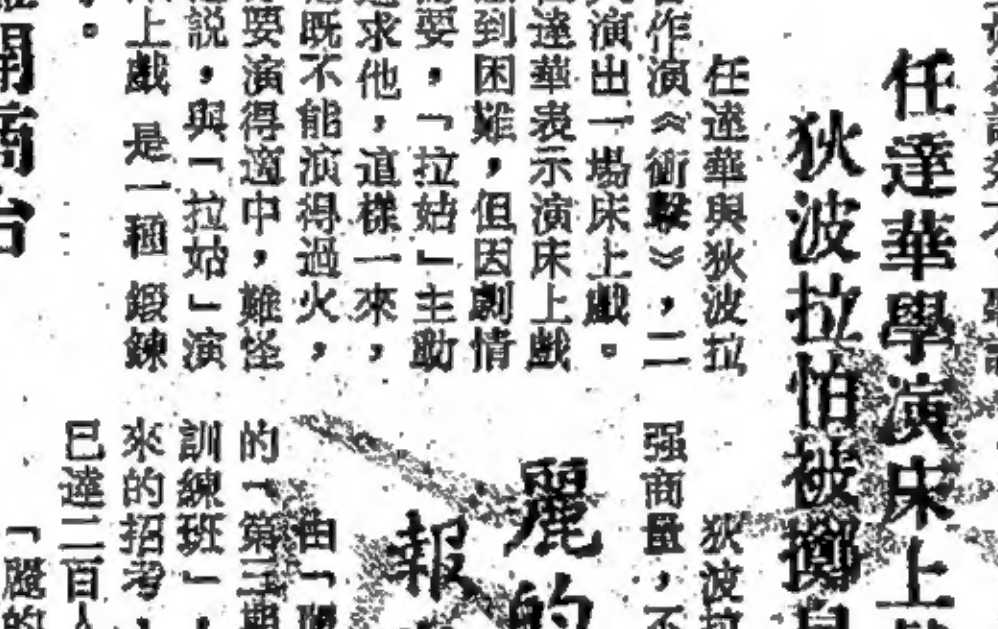 任達華學演床上
狄波拉怕被擲
任達華與狄波拉
作演《衝擊》,二
演出一場床上戲。
達華表示演床上戲
到困難,但因劇情
要,「拉姑」主動
求他,這樣一來,
既不能演得過火,
要演得適中,難怪
説,與「拉姑」演
上戲 是一種 鍛鍊
。
狄波拉
强商量,不
麗的
報
由「
的「第三期
訓練班」,
來的招考,
已達二百人
「麗的